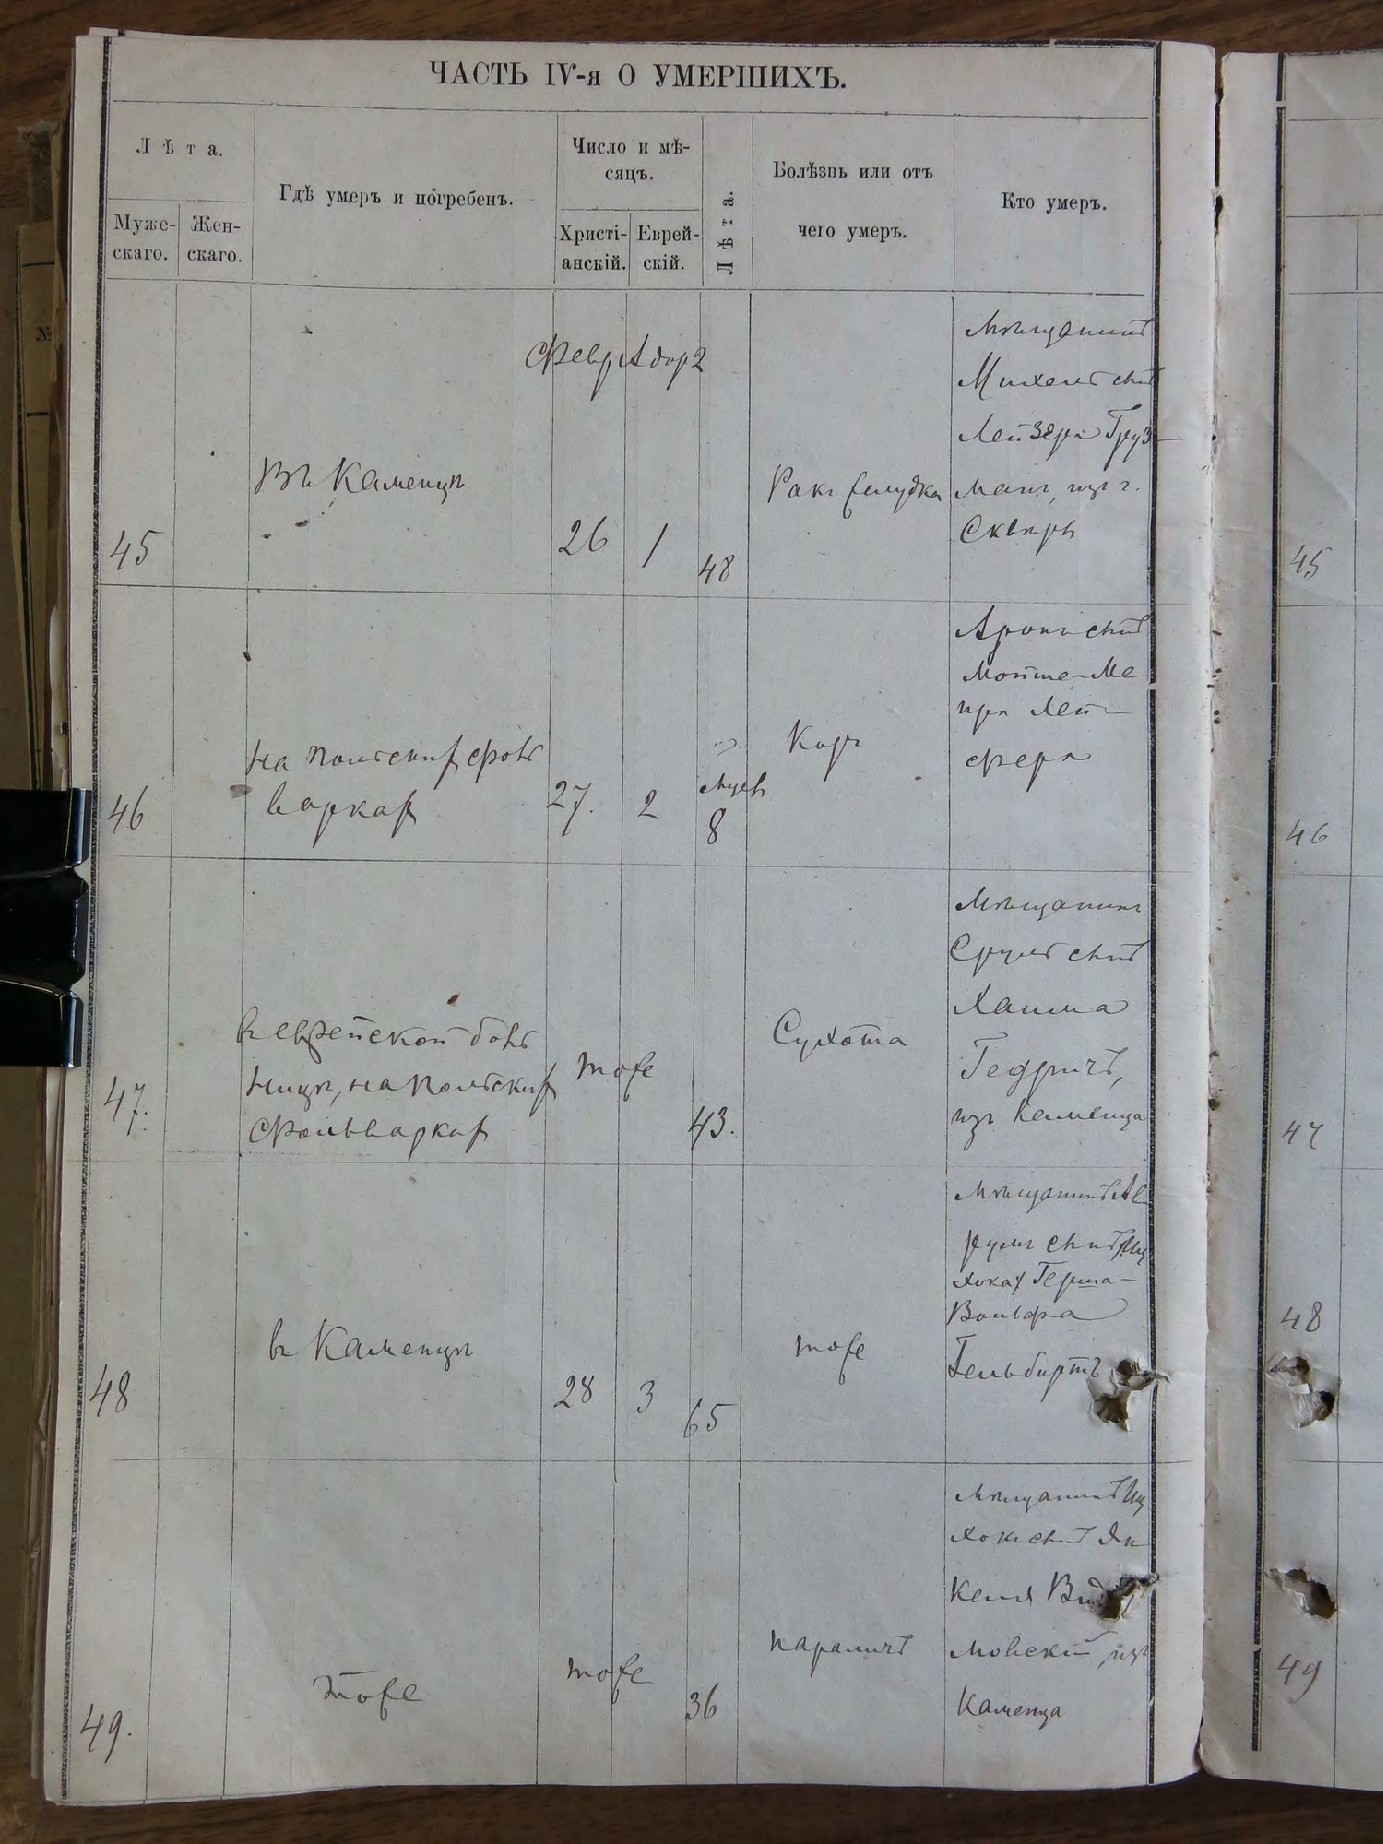 ЧАСТЬ IV-я О УМЕРШИХЪ.
Лѣта.
Муже-
скаго.
Жен-
скаго.
Гдѣ умеръ и погребенъ.
Число и мѣ-
сяцъ.
Христі-
анскій.
Еврей-
скій.
Лѣта.
Болѣзнь или отъ
чего умеръ.
Кто умеръ.
№
45
Въ Каменцѣ
Февр
26
Адор 2
1
48
Ракъ желудка
Мѣщанинъ
Михель сынъ
Лейзера Груз-
манъ, изъ г.
Сквиры
45
46
на польских фоль
варках
27.
2
8
Корь
Аронъ сынъ
Мойше-Ме
ера Лей-
фера
46
47.
в еврейской боль
ницѣ, на польских
фольварках
тоже
43.
Сухота
Мѣщанинъ
Сруль сынъ
Хаима
изъ Каменца
47
48
въ Каменцѣ
28
3
65
тоже
Мѣщанинъ Ав
румъ сынъ Иц
Герша-
Вольфа
Гельбиртъ
48
49.
тоже
тоже
36
параличъ
Мѣщанинъ Иц
хокъ сынъ Ян
келя
мовскій, изъ
Каменца
49